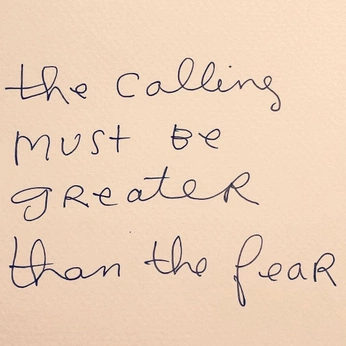 the calling
must be
greater
than the fear